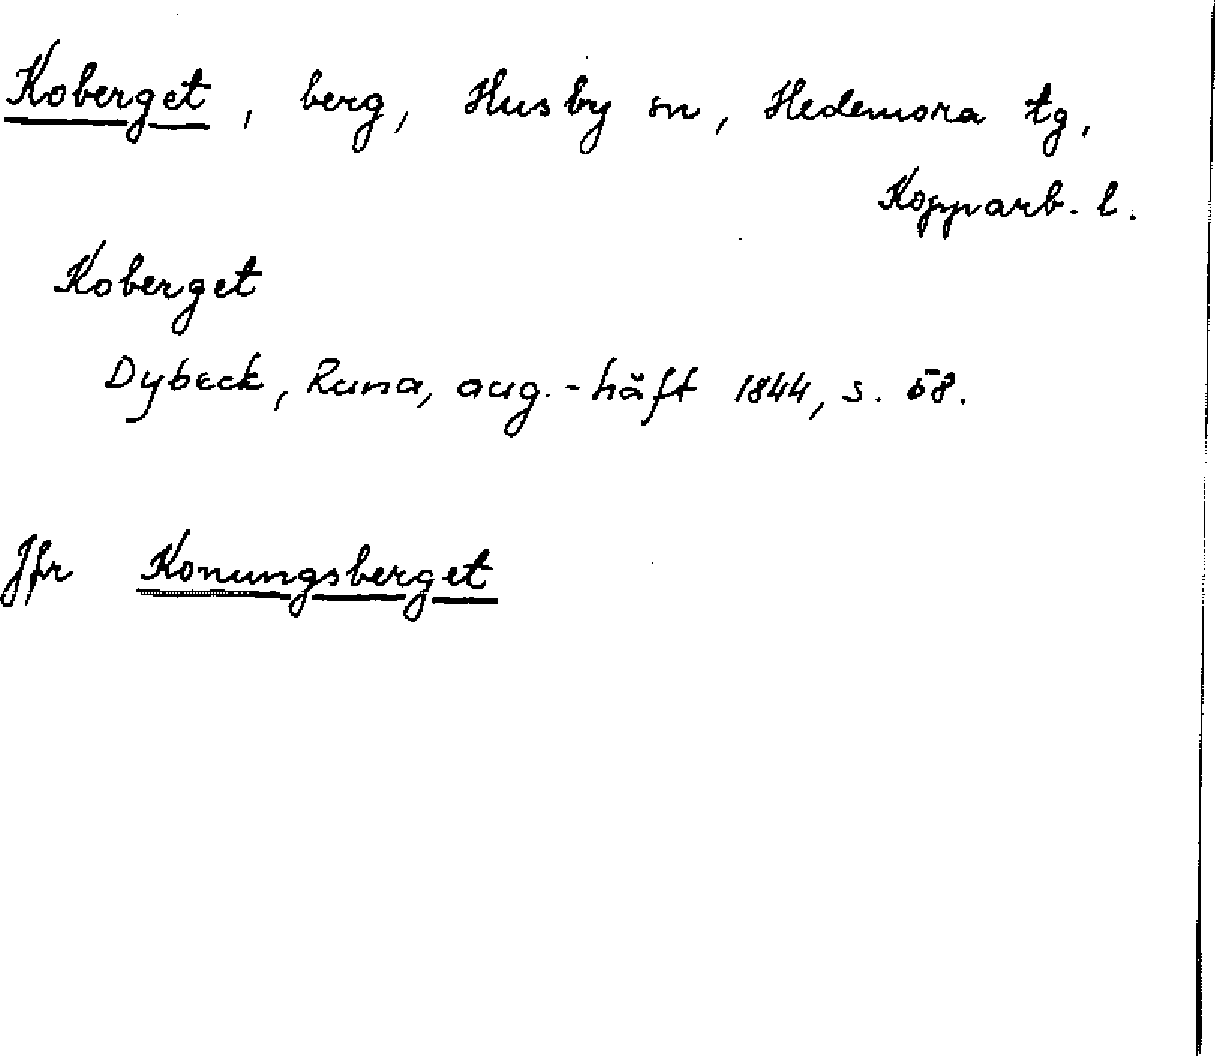 Koberget, berg, Husby sn, Hedemora tg,
Kopparb. l.
Koberget
Dybeck, Runa, aug.-häft 1844, s. 58.
Jfr Konungsberget